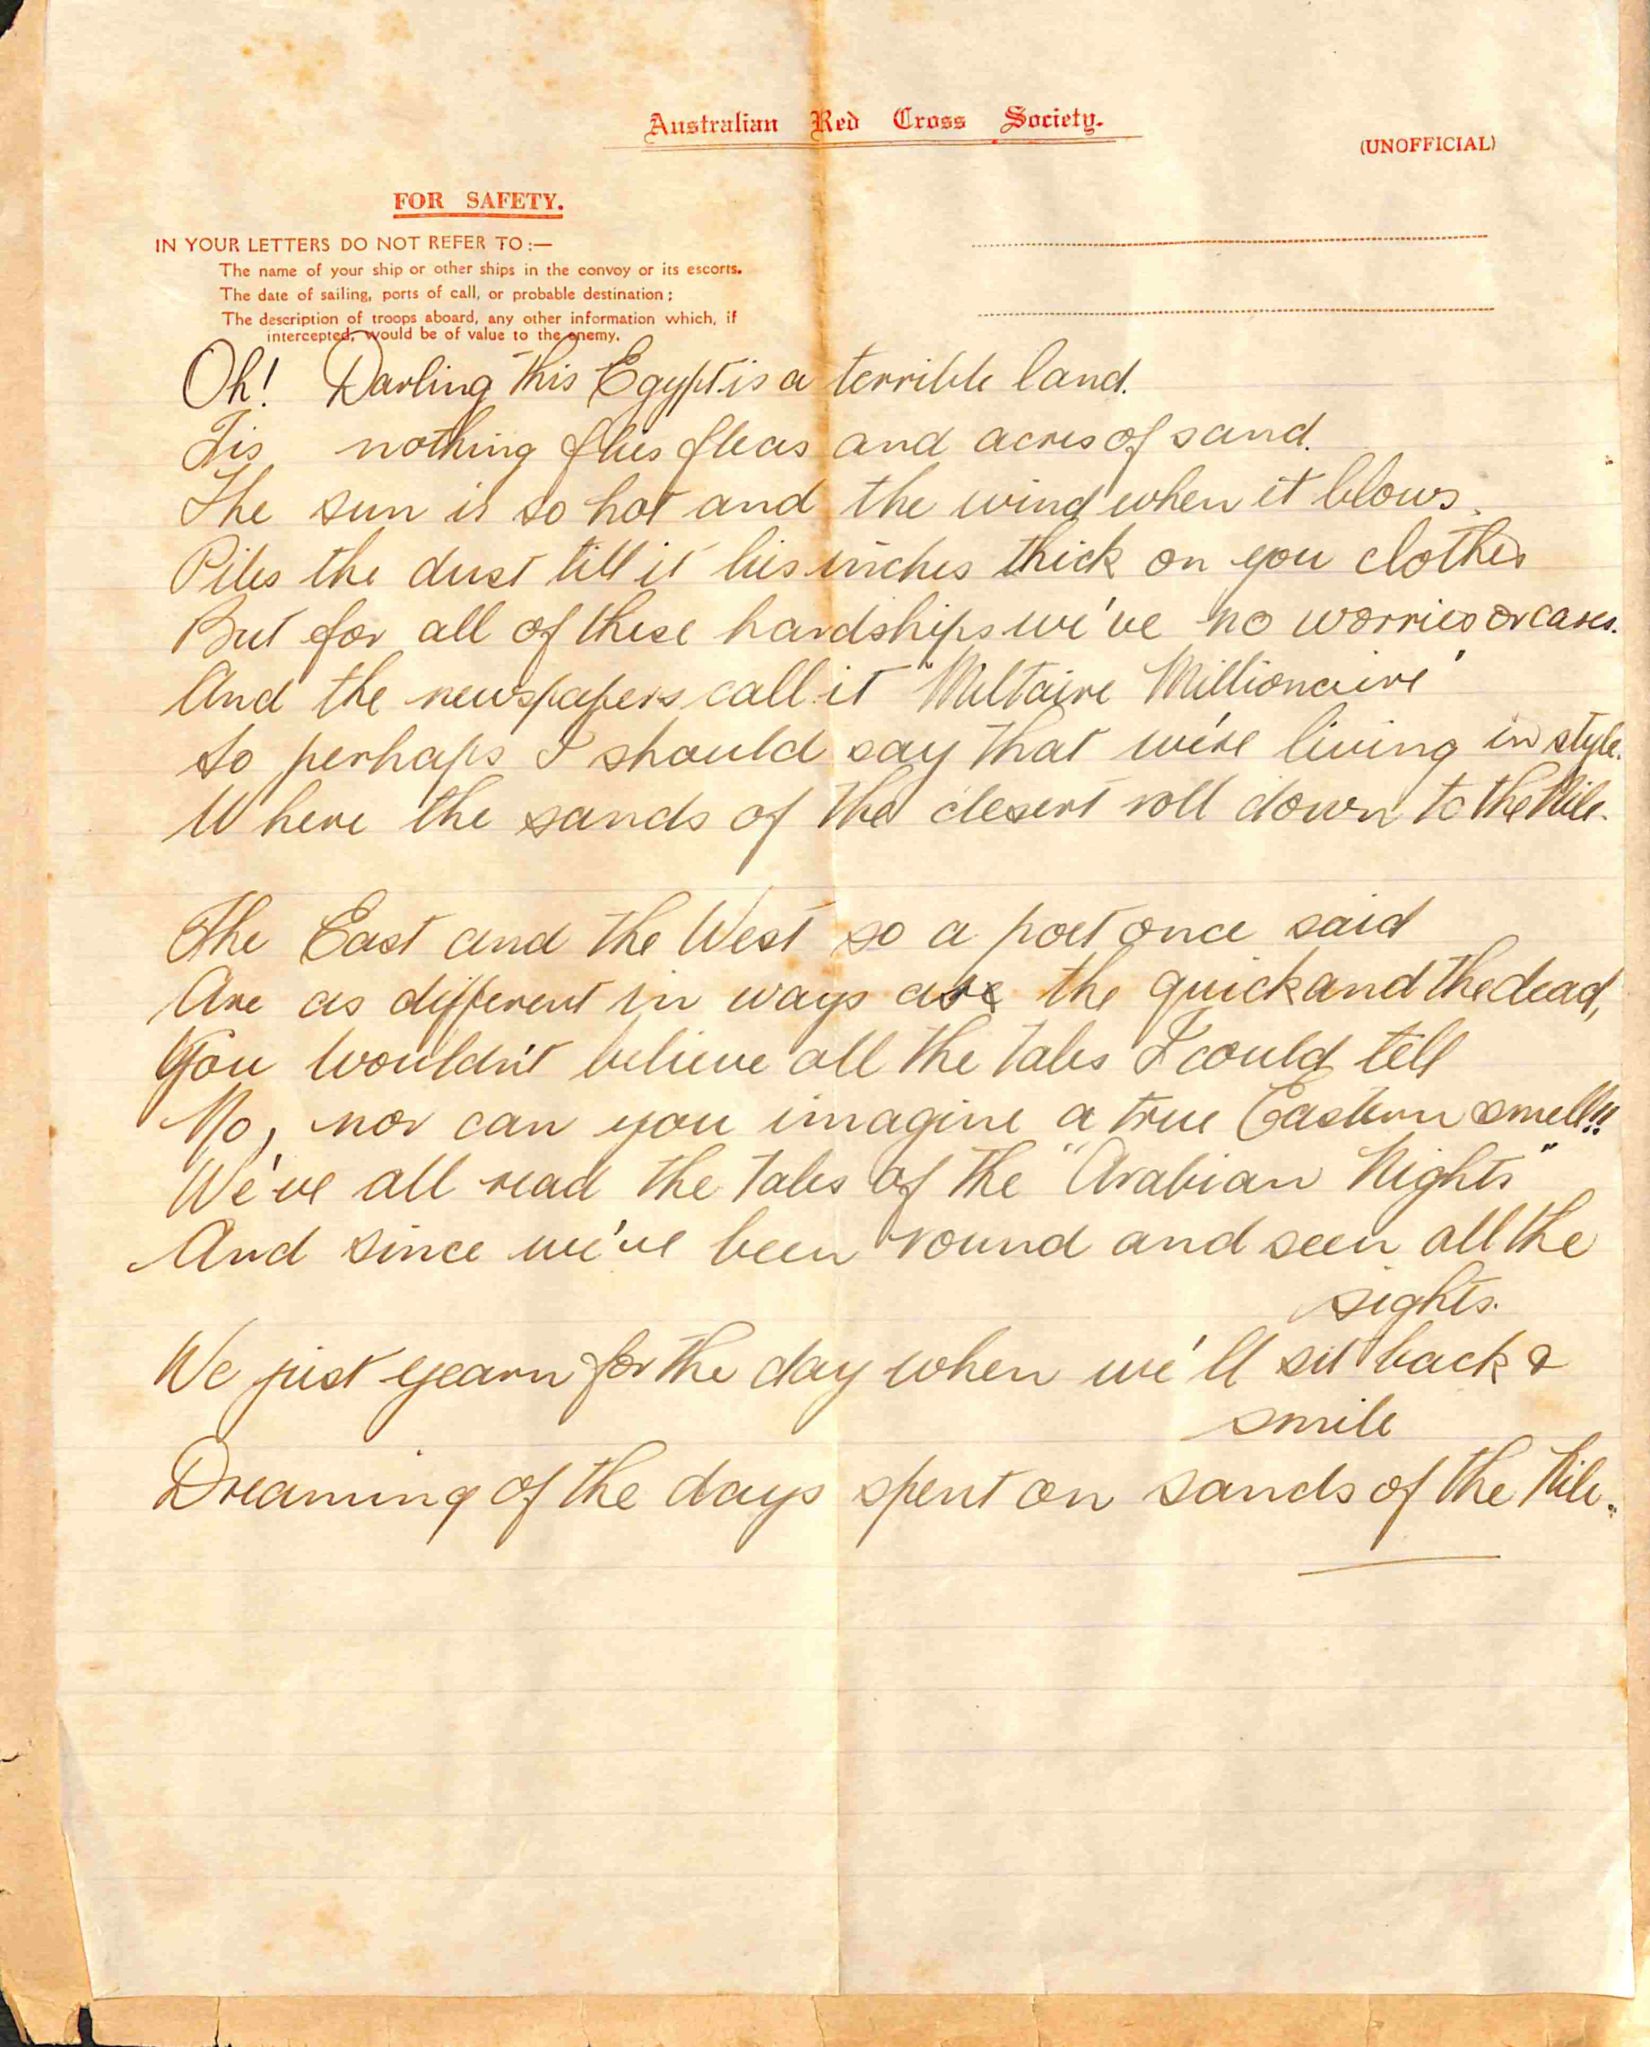 Australian Red Cross Society.
(UNOFFICIAL)
FOR SAFETY.
IN YOUR LETTERS DO NOT REFER TO :—
The name of your ship or other ships in the convoy or its escorts.
The date of sailing, ports of call, or probable destination ;
The description of troops aboard, any other information which, if
intercepted, would be of value to the enemy.
Oh! Darling this Egypt is a terrible land.
Tis nothing flies fleas and acres of sand.
The sun is so hot and the wind when it blows.
Piles the dust till it lies inches thick on you clothes
But for all of these hardships we've no worries or cares.
And the newspapers call it "Miltaire Millionaire'
So perhaps I should say that we're living in style.
Where the sands of the desert roll down to the Nile.
The East and the West so a poet once said
Are as different in ways as the quick and the dead,
You wouldn't believe all the tales I could tell
No, nor can you imagine a true Eastern smell!!
We've all read the tales of the "Arabian Nights"
And since we've been round and seen all the
sights.
We just yearn for the day when we'll sit back &
smile
Dreaming of the days spent on sands of the Nile..